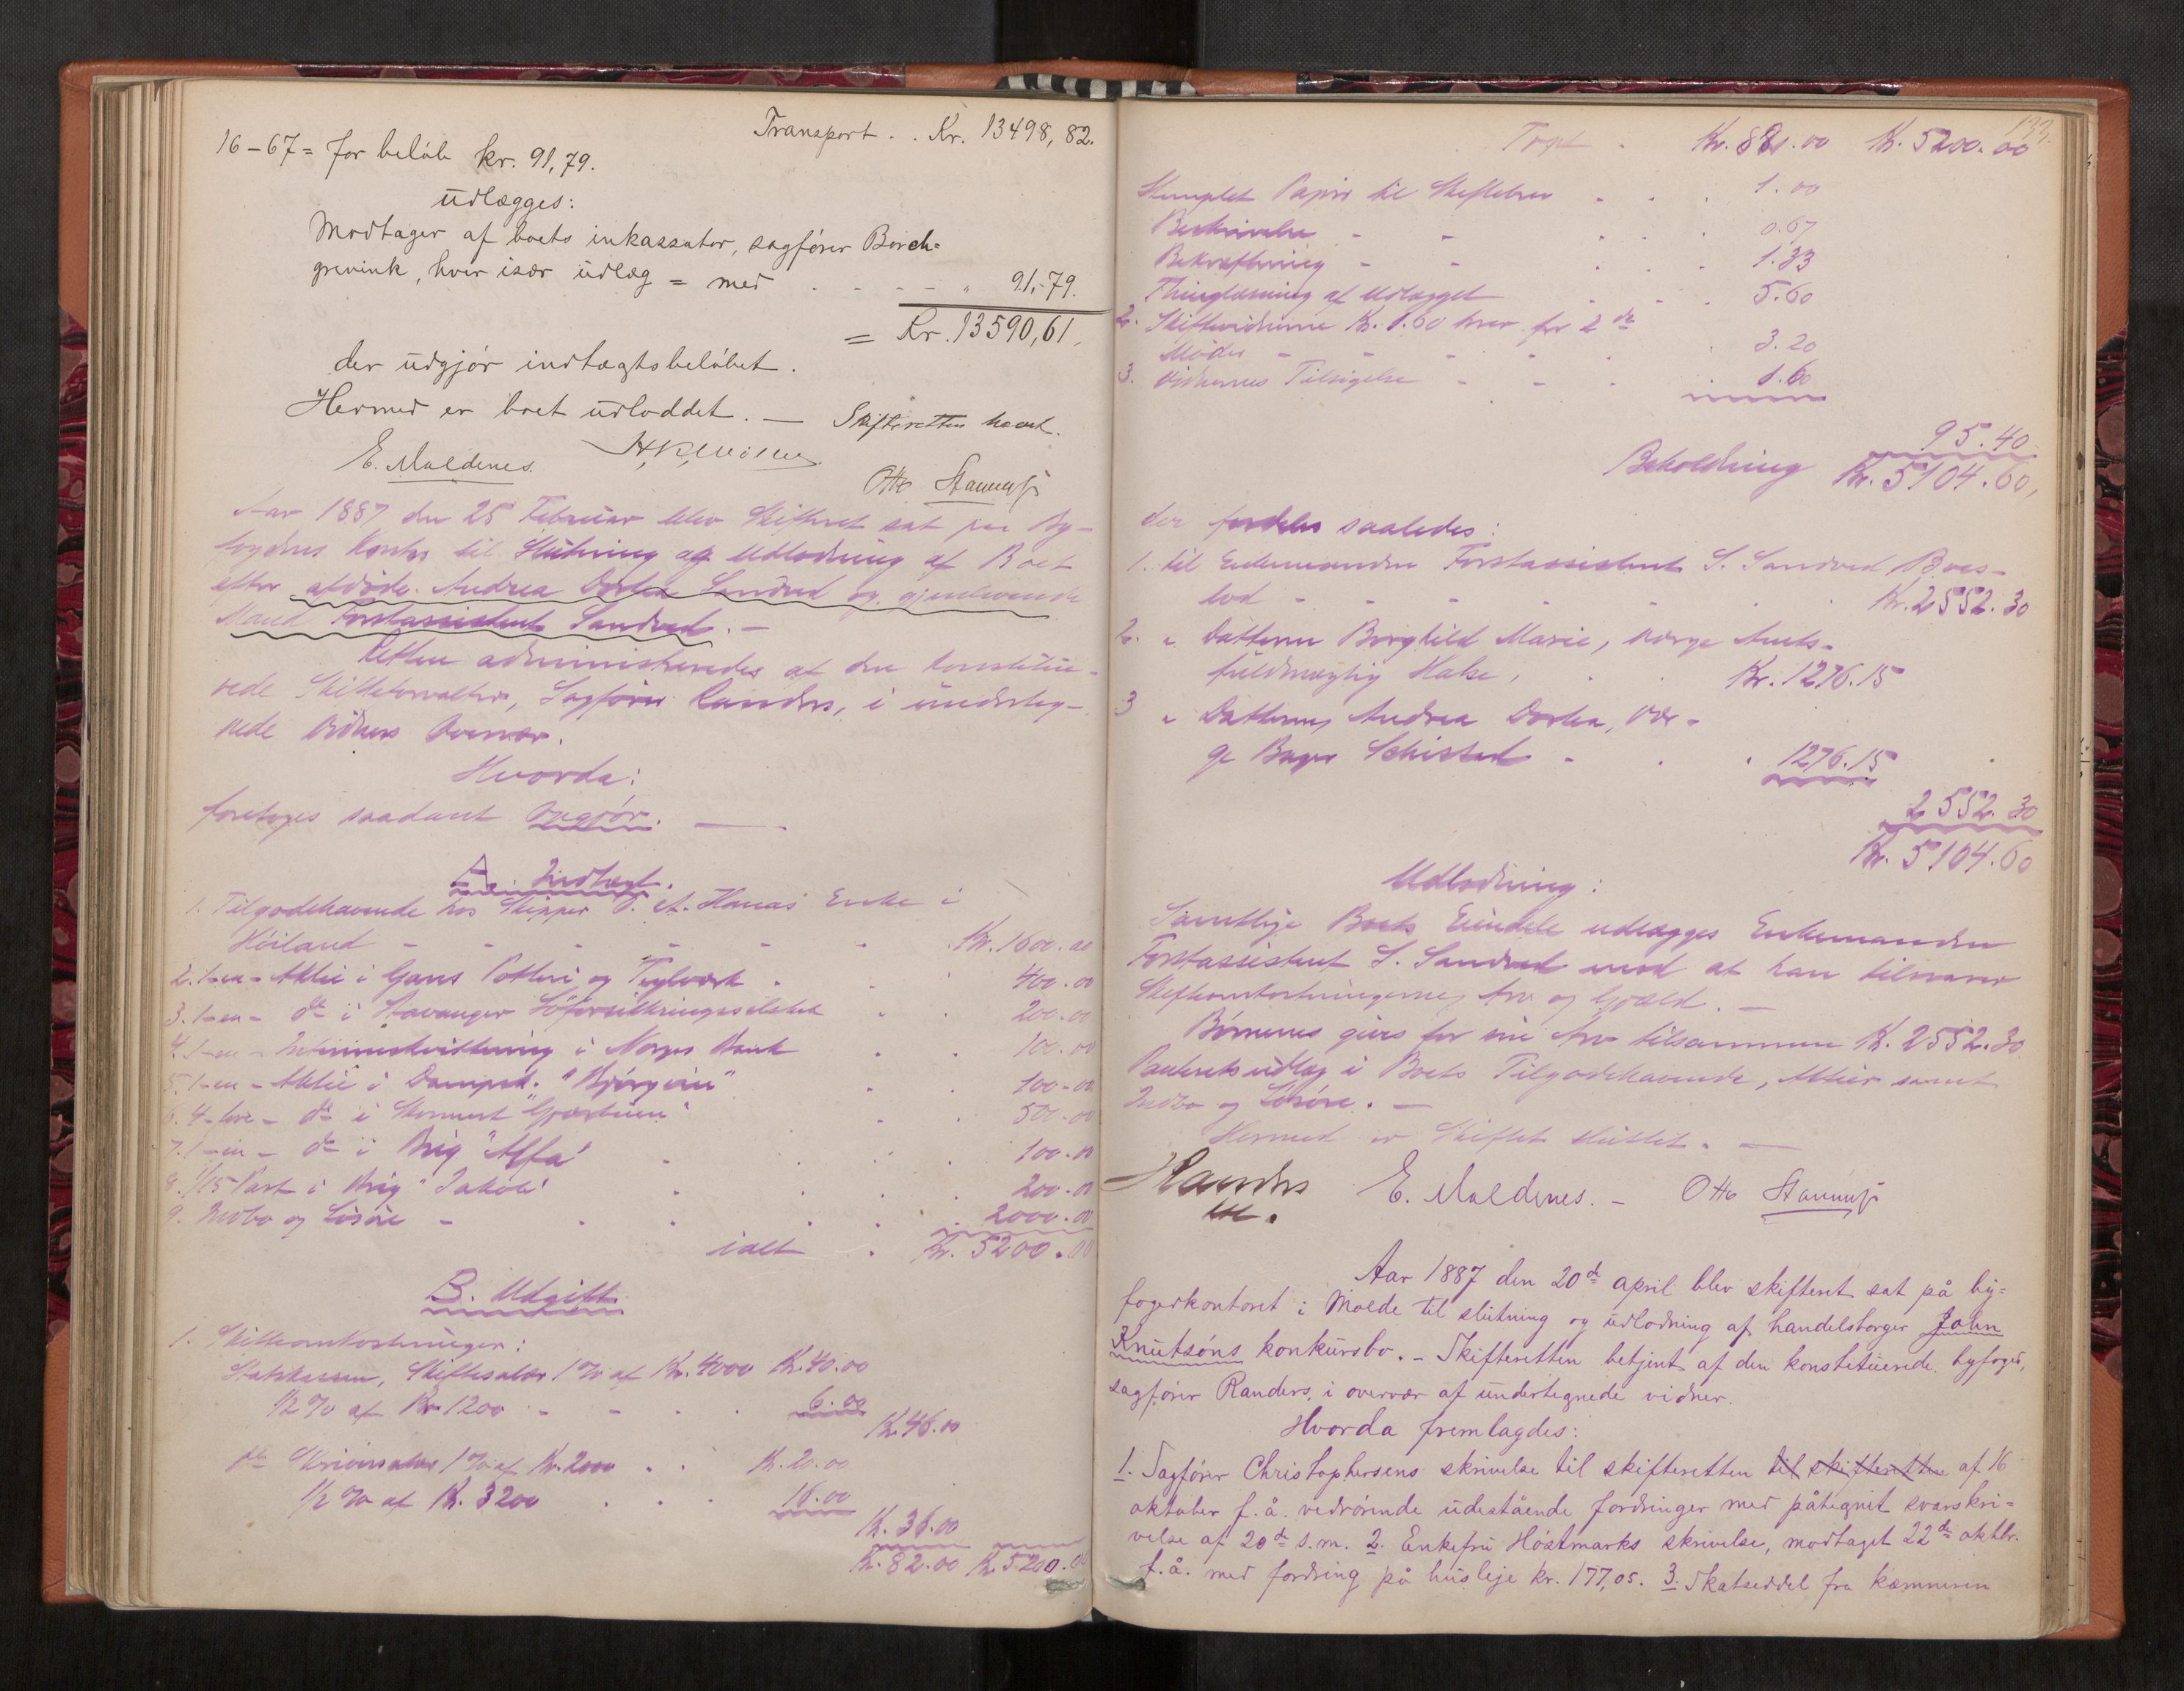 Transport . . Kr. 13498,82.
16-67 = for beløb kr. 91,79.
udlægges:
Modtager af boets inkassator, sagfører Borch=
grevink, hver især udlæg = med . - - - " 91,79.
= Kr. 13590,61,
der udgjør indtægtsbeløbet.
Hermed er boet udloddet. — Skifteretten hævet.
E. Maldenes.
Otto Stannup
Aar 1887 den 25 Februar blev Skifteret sat paa By-
fogdens Kontor til Slutning og Udlodning af Boet
efter afdøde Andrea Dorthea Sandved og gjenlevende
Mand Forstassistent Sandved. —
Retten administreredes af den konstitue-
rede Skifteforvalter, Sagfører Randers, i underteg-
nede Vidners Overvær.
Hvorda:
foretoges saadant Opgjør. —
A. Indtægt.
1. Tilgodehavende hos Skipper Enke i
Høiland - - - - - Kr. 1600.00
2. 1-en- Aktie i Gans Potteri og Teglværk . . 400.00
3. 1-en- do i Stavanger Søforsikringsselskab . . 200.00
4. 1-en- i Norges Bank . . 100.00
5. 1-en- Aktie i Dampsk. "Bjørgvin" . . 100.00
6. 4-fire- do i . . 500.00
7. 1-en- do i Brig "Alfa" . . . 100.00
8. 1/15 Part i Brig "Jakob" . . . 200.00
9. Indbo og Løsøre - . . . 2000.00
ialt . Kr. 5200.00
B. Udgift.
1. Skifteomkostninger:
Statskassen, Skiftesalær 1 % af Kr. 4000 Kr. 40.00
1/2 % af Kr 1200 - - . . 6.00
Kr. 46.00
do Skriversalær 1 % af Kr. 2000 . . Kr. 20.00
1/2 % af Kr. 3200 . . . 16.00
Kr. 36.00
Kr. 82.00 Kr. 5200.00
133.
Trspt . Kr. 82.00 Kr. 5200.00
Stemplet Papir til Skiftebrev . . . 1.00
Beskrivelse - - . . . 0.67
Bekræftning - - . . . 1.33
Thinglæsning af Udlægget . . . 5.60
2. Skiftevidnerne Kr. 1.60 hver for 2 de
Møder - - - - . 3.20
3. Vidnernes Tilsigelse - - . . 1.60
95.40
Beholdning Kr. 5104.60,
der fordeles saaledes:
1. til Enkemanden Forstassistent S. Sandved Boes-
lod - - - - - . Kr. 2552.30
2. " Datteren Borghild Marie, Værge Amts-
fuldmægtig Halse, . . Kr. 1276.15
3 " Datteren Andrea Dorthea, Vær-
ge Bager Schiøtad - . . 1276.15
2552.30
Kr. 5104.60
Udlodning:
Samtlige Boets Eiendele udlægges Enkemanden
Forstassistent S. Sandved mod at han tilsvarer
Skifteomkostningerne, Arv og Gjæld. —
Børnenes gives for sin Arv tilsammen Kr. 2552.30
Panteretsudlæg i Boets Tilgodehavende, Aktier samt
Indbo og Løsøre. —
Hermed er Skiftet sluttet. —
Randers E. Maldenes. — Otto Stannup
Aar 1887 den 20de april blev skifteret sat på by=
fogedkontoret i Molde til slutning og udlodning af handelsborger John
Knutsøns konkursbo. — Skifteretten betjent af den konstituerede byfoged,
sagfører Randers, i overvær af undertegnede vidner.
Hvorda fremlagdes:
1. Sagfører Christophersens skrivelse til skifteretten til skifteretten af 16
oktober f. å. vedrørende udestående fordringer med påtegnet svarskri=
velse af 20de s.m. 2. Enkefru Høstmarks skrivelse, modtaget 22de oktbr.
f. å. med fordring på husleje kr. 177,05. 3. Skatseddel fra kæmneren